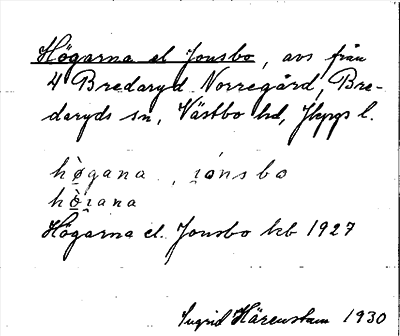 Högarna el Jonsbo, avs från
4 Bredaryd Norregård, Bre-
daryds sn, Västbo hd, Jkpgs l.
hø̀gana, i̯ónsbo
hø̀i̯ana
Högarna el. Jonsbo kb 1927
Ingrid Härenstam 1930